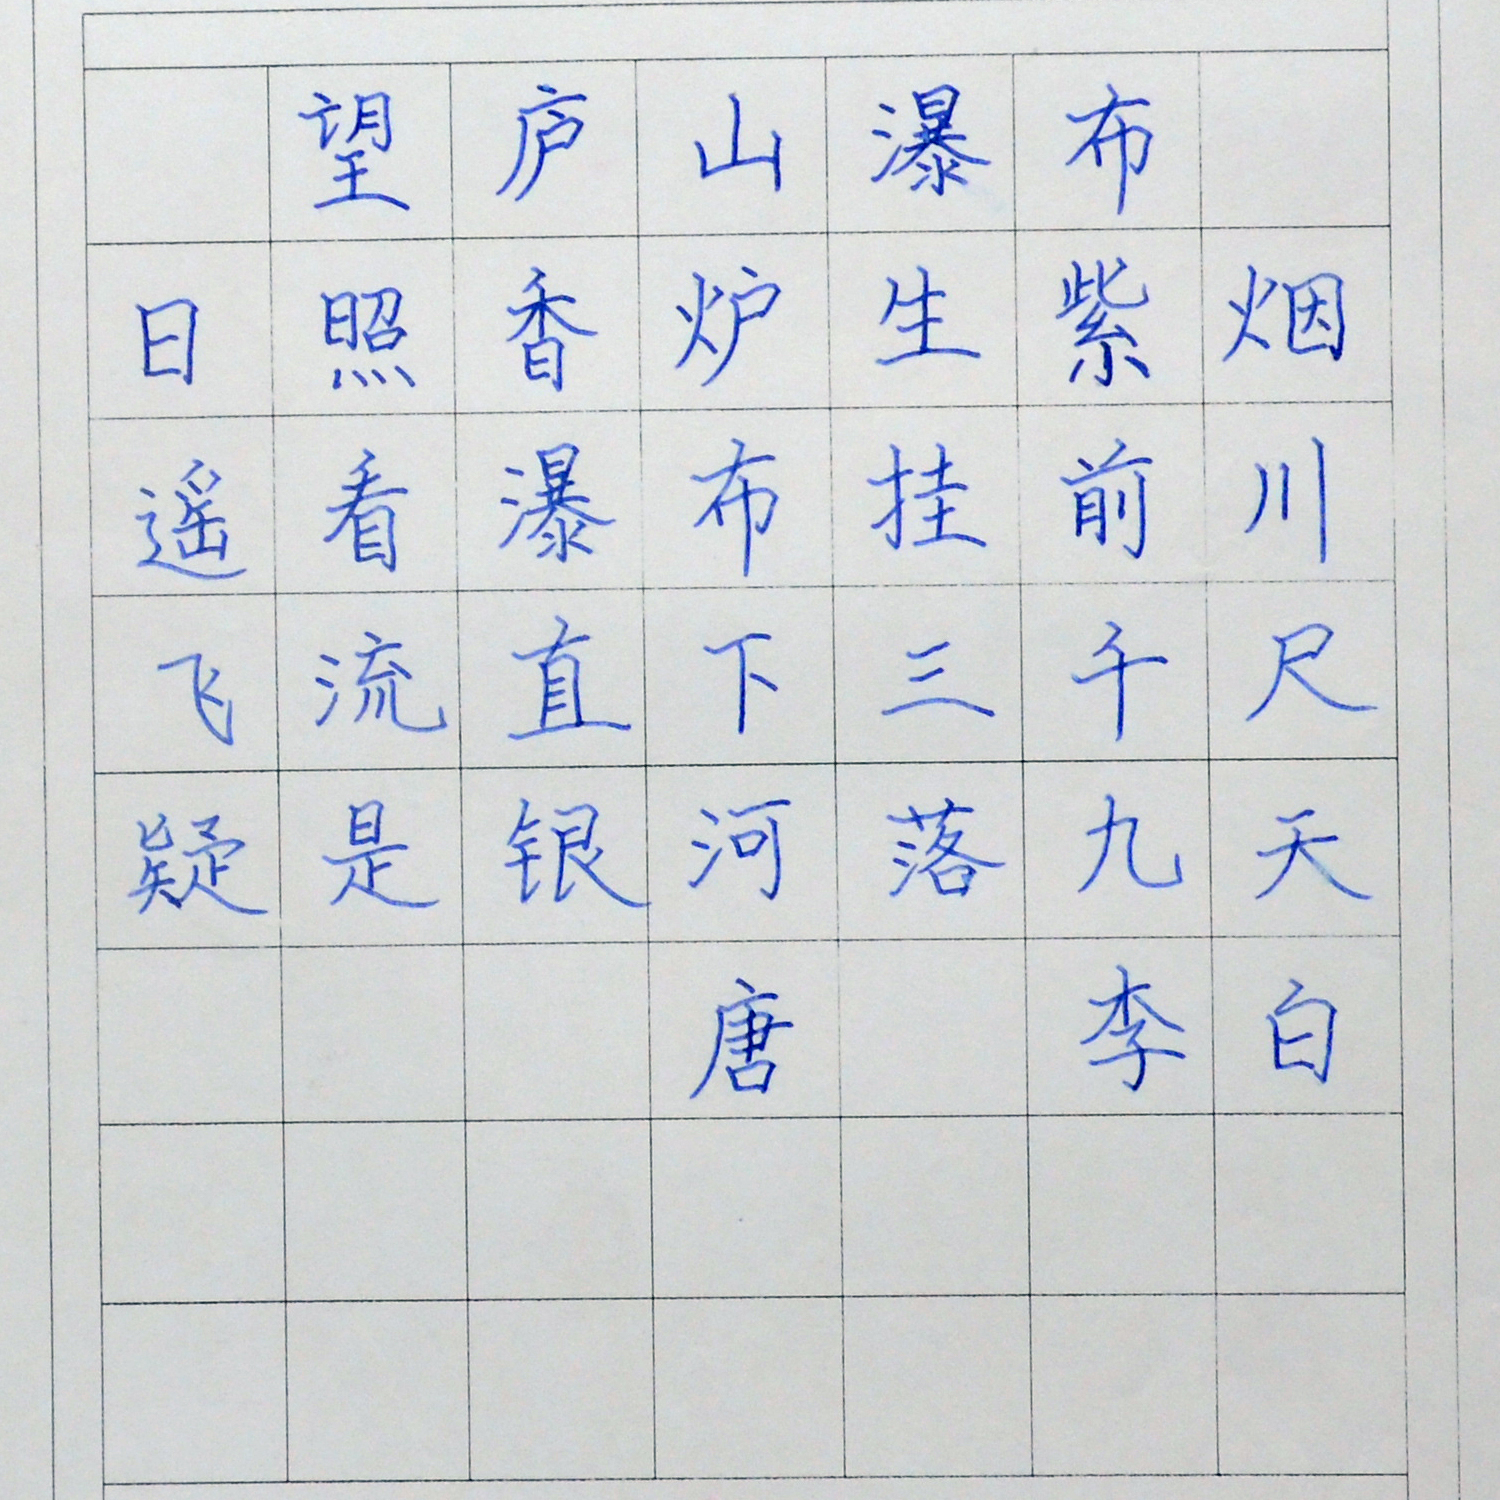 望庐山瀑布
日照香炉生紫烟
遥看瀑布挂前川
飞流直下三千尺
疑是银河落九天
唐 李白